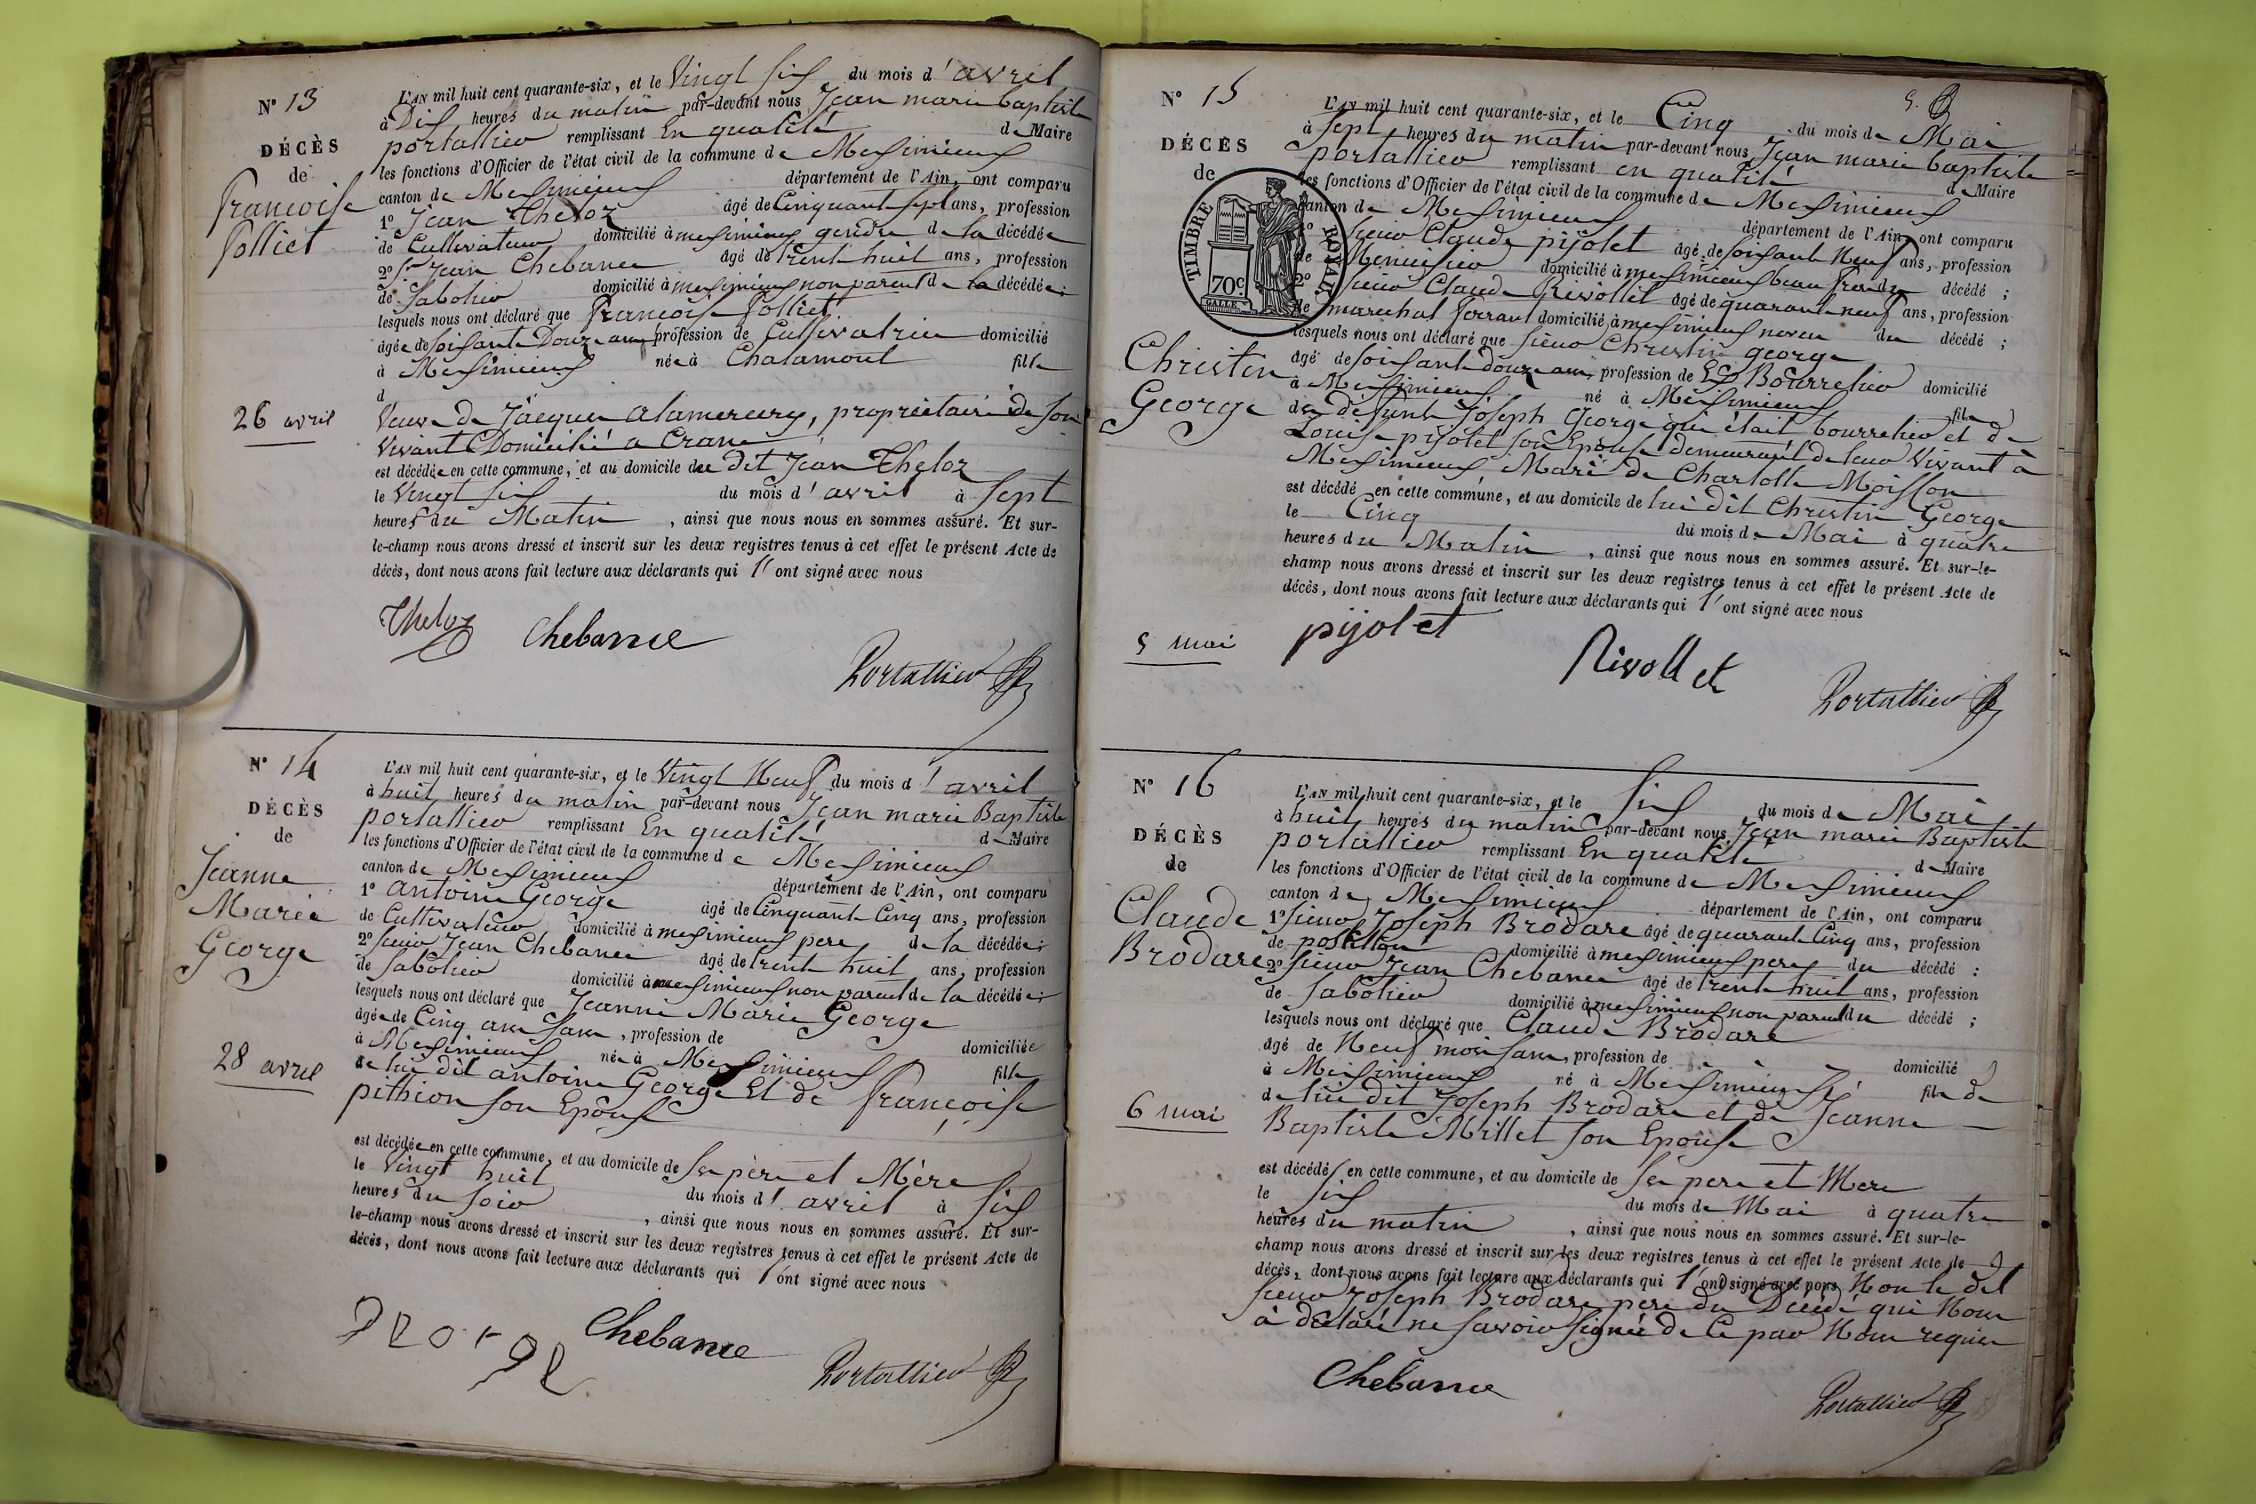 N° 13
DÉCÈS
de
Francoise
Folliet
26 avril
L'AN mil huit cent quarante-six, et le Vingt six du mois d' avril
à Dix heures du matin par-devant nous Jean marie baptiste
portallier remplissant En qualité de Maire
les fonctions d'Officier de l'état civil de la commune de Meximieux
canton de Meximieux département de l'Ain, ont comparu
1° Jean Theloz âgé de Cinquant sept ans, profession
de Cultivateur domicilié à meximieux gendre de la décédée
2° Sr Jean Chebance âgé de trent huit ans, profession
de Sabotier domicilié à meximieux non parent de la décédée;
lesquels nous ont déclaré que Francoise Folliet
âgée de soisante Douze ans profession de Cultivatrice domicilié
à Meximieux née à Chalamont fille
d
Veuve de Jacques alamercery, propriétaire de son
Vivant Domicilié a Crane
est décédée en cette commune, et au domicile du dit Jean Theloz
le Vingt six du mois d' avril à Sept
heures du Matin , ainsi que nous nous en sommes assuré. Et sur-
le-champ nous avons dressé et inscrit sur les deux registres tenus à cet effet le présent Acte de
décès, dont nous avons fait lecture aux déclarants qui l' ont signé avec nous
Theloz Chebance
Portallier
N° 14
DÉCÈS
de
Jeanne
Marie
George
28 avril
L'AN mil huit cent quarante-six, et le Vingt Neuf du mois d' avril
à huit heures du matin par-devant nous Jean marie Baptiste
portallier remplissant En qualité de Maire
les fonctions d'Officier de l'état civil de la commune de Meximieux
canton de Meximieux département de l'Ain, ont comparu
1° antoine George âgé de Cinquant Cinq ans, profession
de Cultivateur domicilié à meximieux pere de la décédée;
2° sieur Jean Chebance âgé de trent huit ans, profession
de Sabotier domicilié à meximieux non parent de la décédée;
lesquels nous ont déclaré que Jeanne Marie George
âgée de Cinq ans sans , profession de domiciliée
à Meximieux née à Meximieux fille
de lui dit antoine George Et de Françoise
pithion son Epouse
est décédée en cette commune, et au domicile de Ses père et Mère
le Vingt huit du mois d' avril à six
heures du soir , ainsi que nous nous en sommes assuré. Et sur-
le-champ nous avons dressé et inscrit sur les deux registres tenus à cet effet le présent Acte de
décès, dont nous avons fait lecture aux déclarants qui l' ont signé avec nous
george Chebance
Portallier
5.
N° 15
DÉCÈS
de
TIMBRE ROYAL
70c.
Christin
George
5 mai
L'AN mil huit cent quarante-six, et le Cinq du mois de Mai
à sept heures du matin par-devant nous Jean marie baptiste
portallier remplissant en qualité de Maire
les fonctions d'Officier de l'état civil de la commune de Meximieux
canton de Meximieux département de l'Ain, ont comparu
1° sieur Claude pijolet âgé de soisant Neuf ans, profession
de Menuisier domicilié à meximieux beau frere du décédé ;
2° sieur Claude Rivollet âgé de quarant neuf ans, profession
de marechal ferrant domicilié à meximieux neveu du décédé ;
lesquels nous ont déclaré que sieur Christin george
âgé de soisante douze ans, profession de Bourrelier domicilié
à Meximieux né à Meximieux fils
de défunt Joseph George qui était bourrelier et de
Louise pijolet son Epouse demeurant de leur Vivant à
Meximieux Mari de Charlotte Moisson
est décédé en cette commune, et au domicile de lui dit Christin George
le Cinq du mois de Mai à quatre
heures du Matin , ainsi que nous nous en sommes assuré. Et sur-le-
champ nous avons dressé et inscrit sur les deux registres tenus à cet effet le présent Acte de
décès, dont nous avons fait lecture aux déclarants qui l' ont signé avec nous
pijolet Rivollet
Portallier
N° 16
DÉCÈS
de
Claude
Brodare
6 mai
L'AN mil huit cent quarante-six, et le Six du mois de Mai
à huit heures du matin par-devant nous Jean marie Baptiste
portallier remplissant En qualité de Maire
les fonctions d'Officier de l'état civil de la commune de Meximieux
canton de Meximieux département de l'Ain, ont comparu
1° sieur Joseph Brodare âgé de quarante Cinq ans, profession
de postillon domicilié à meximieux pere du décédé ;
2° sieur Jean Chebance âgé de trent huit ans, profession
de Sabotier domicilié à meximieux non parent du décédé ;
lesquels nous ont déclaré que Claude Brodare
âgé de Neuf mois sans, profession de domicilié
à Meximieux né à Meximieux fils de
de lui dit Joseph Brodare et de Jeanne
Baptiste Millet son Epouse
est décédé en cette commune, et au domicile de Ses pere et Mere
le six du mois de Mai à quatre
heures du matin , ainsi que nous nous en sommes assuré. Et sur-le-
champ nous avons dressé et inscrit sur les deux registres tenus à cet effet le présent Acte de
décès, dont nous avons fait lecture aux déclarants qui l' ont signé avec nous Non le dit
sieur Joseph Brodare pere du Décédé qui Nous
à déclaré ne savoir signée de Ce par Nous requis
Chebance
Portallier